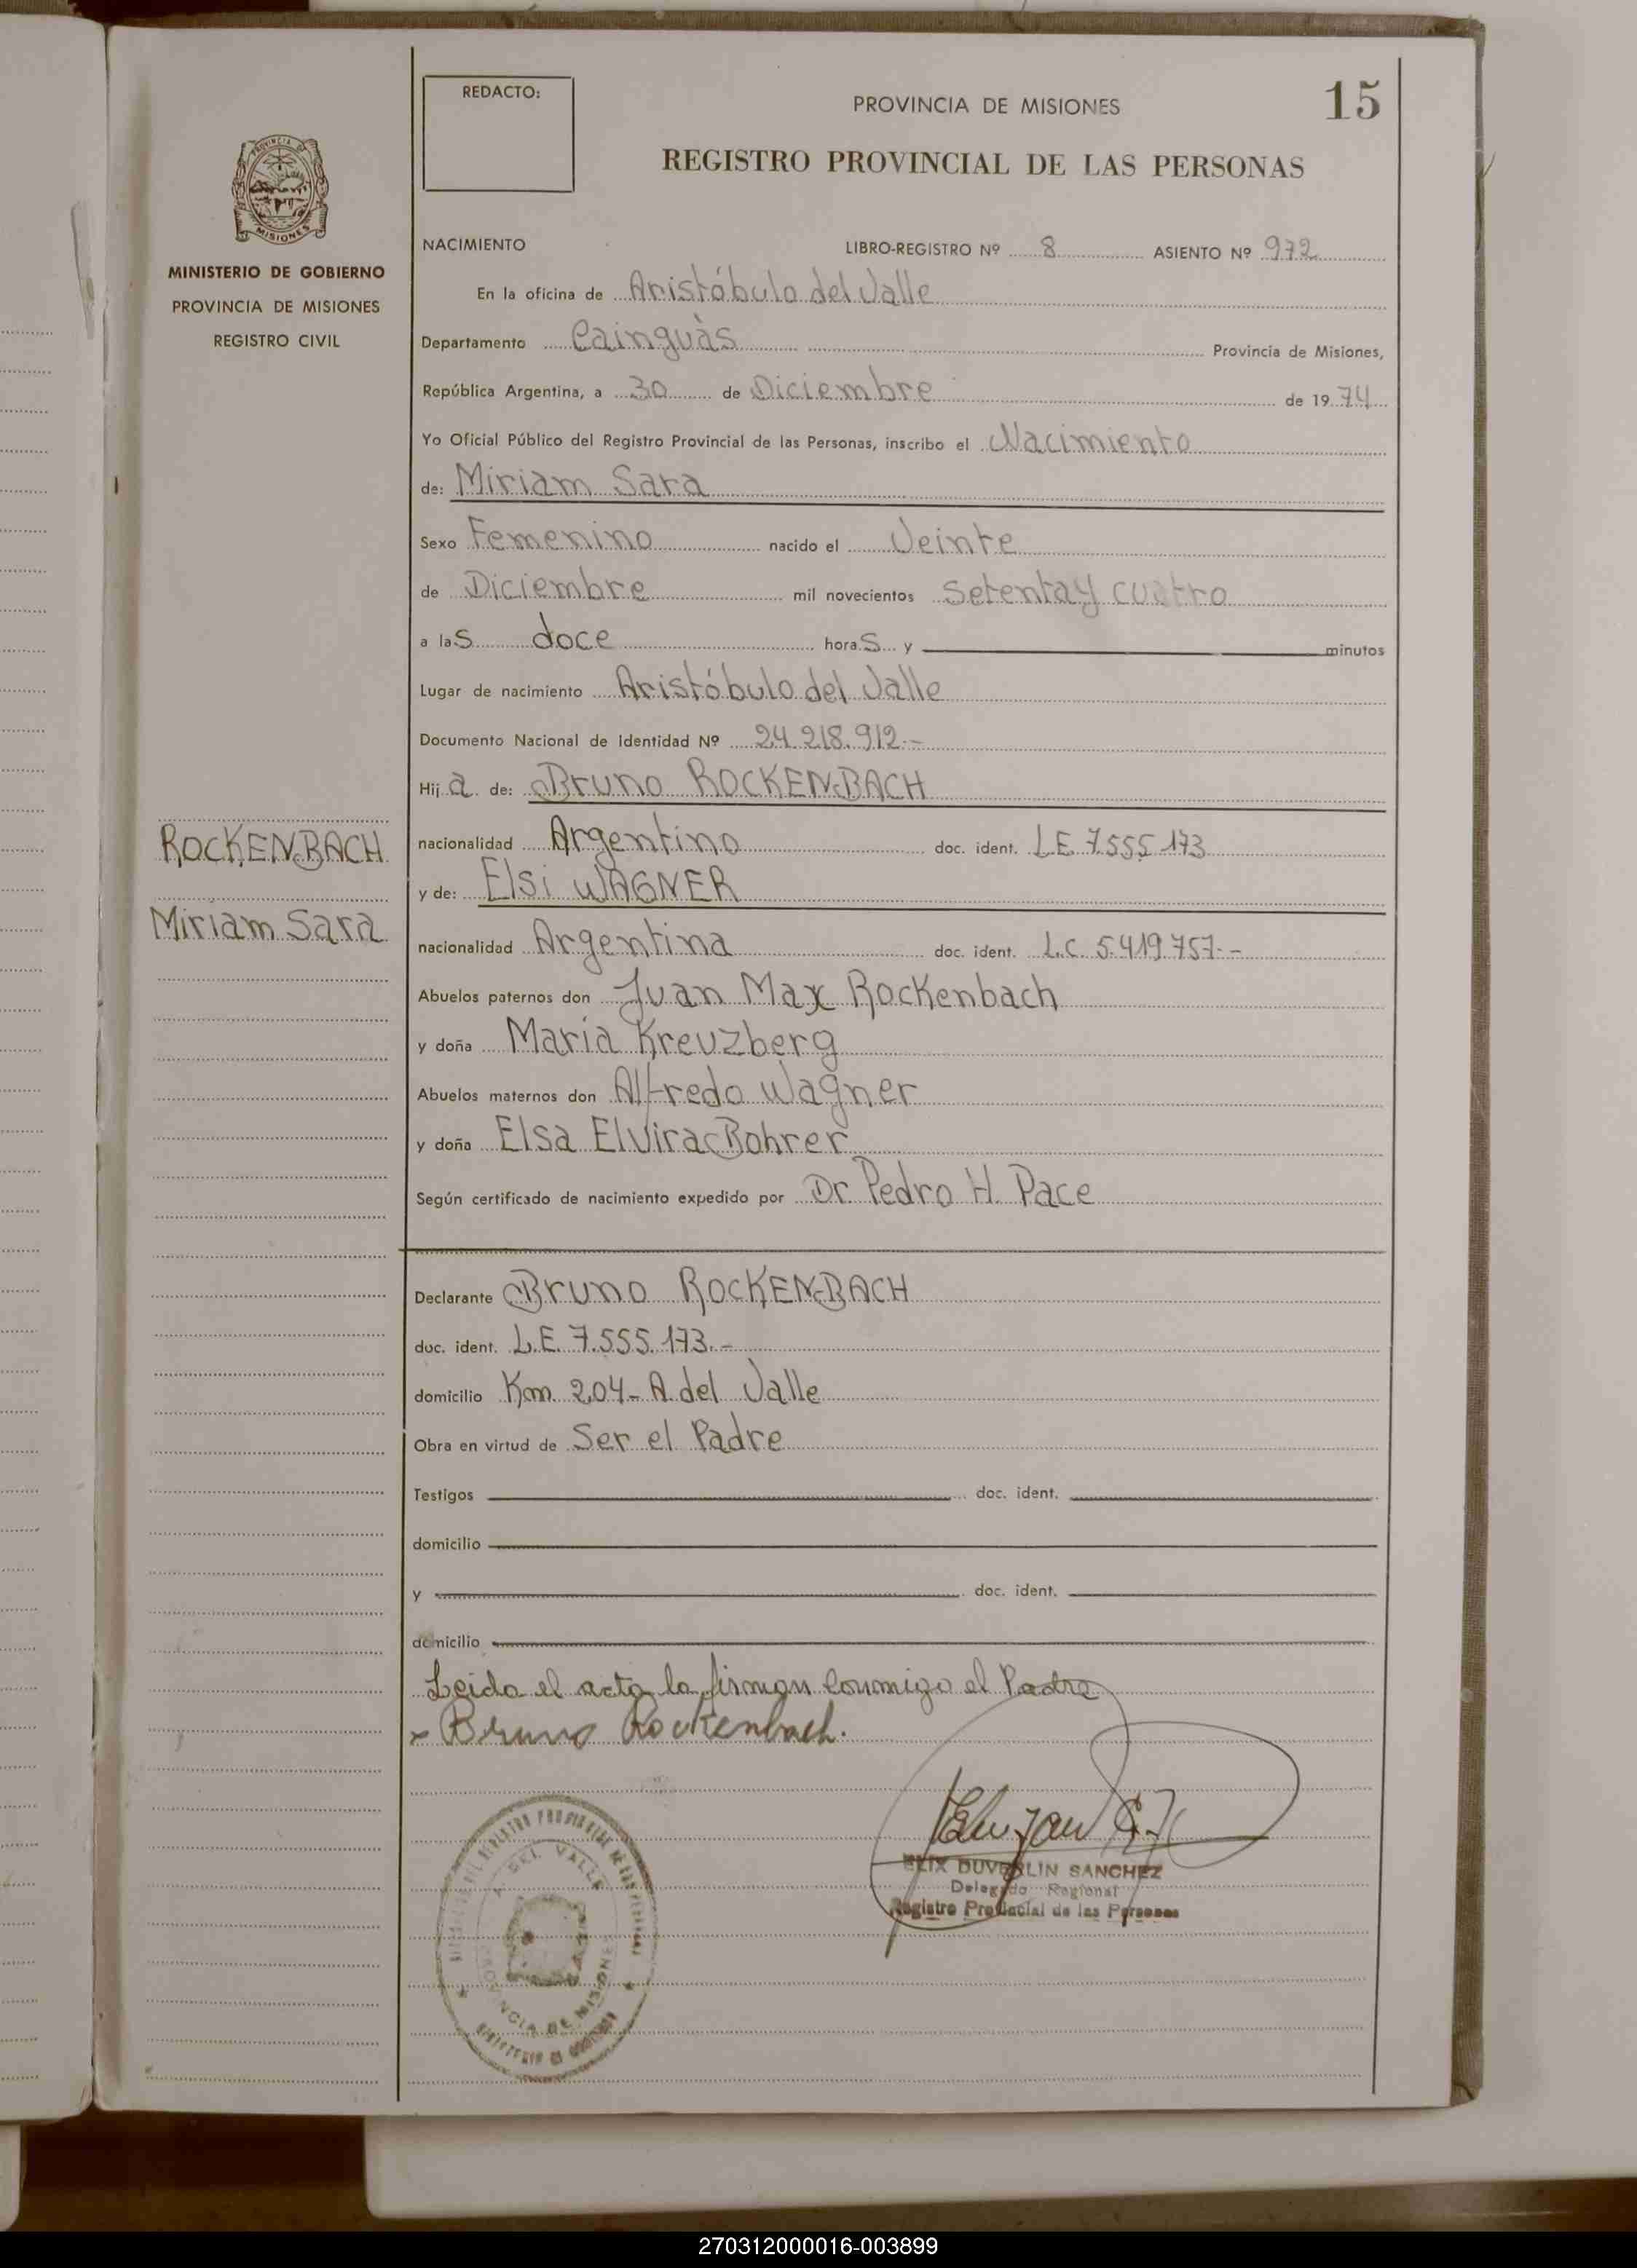 REDACTO:
PROVINCIA DE MISIONES
15
REGISTRO PROVINCIAL DE LAS PERSONAS
PROVINCIA DE
MISIONES
MINISTERIO DE GOBIERNO
PROVINCIA DE MISIONES
REGISTRO CIVIL
NACIMIENTO LIBRO-REGISTRO Nº 8 ASIENTO Nº 972
En la oficina de Aristóbulo del Valle
Departamento Cainguàs Provincia de Misiones,
República Argentina, a 30 de Diciembre de 19 74
Yo Oficial Público del Registro Provincial de las Personas, inscribo el Nacimiento
de: Miriam Sara
Sexo Femenino nacido el Veinte
de Diciembre mil novecientos Setenta y cuatro
a las doce horas y minutos
Lugar de nacimiento Aristóbulo del Valle
Documento Nacional de Identidad Nº 24.218.912.-
Hija de: Bruno ROCKENBACH
nacionalidad Argentino doc. ident. L.E. 7.555.173
y de: Elsi WAGNER
nacionalidad Argentina doc. ident. L.C. 5.419.757.-
ROCKENBACH
Miriam Sara
Abuelos paternos don Juan Max Rockenbach
y doña Maria Kreuzberg
Abuelos maternos don Alfredo Wagner
y doña Elsa Elvira Bohrer
Según certificado de nacimiento expedido por Dr. Pedro H. Pace
Declarante Bruno ROCKENBACH
doc. ident. L.E. 7.555.173.-
domicilio Km. 204- A. del Valle
Obra en virtud de Ser el Padre
Testigos doc. ident.
domicilio
y doc. ident.
domicilio
Leida el acta la firman conmigo el Padre
x Bruno Rockenbach.
ELIX DUVERLIN SANCHEZ
Delegado Regional
Registro Provincial de las Personas
REGISTRO PROVINCIAL DE LAS PERSONAS
A. DEL VALLE
PROVINCIA DE MISIONES
MINISTERIO DE GOBIERNO
270312000016-003899